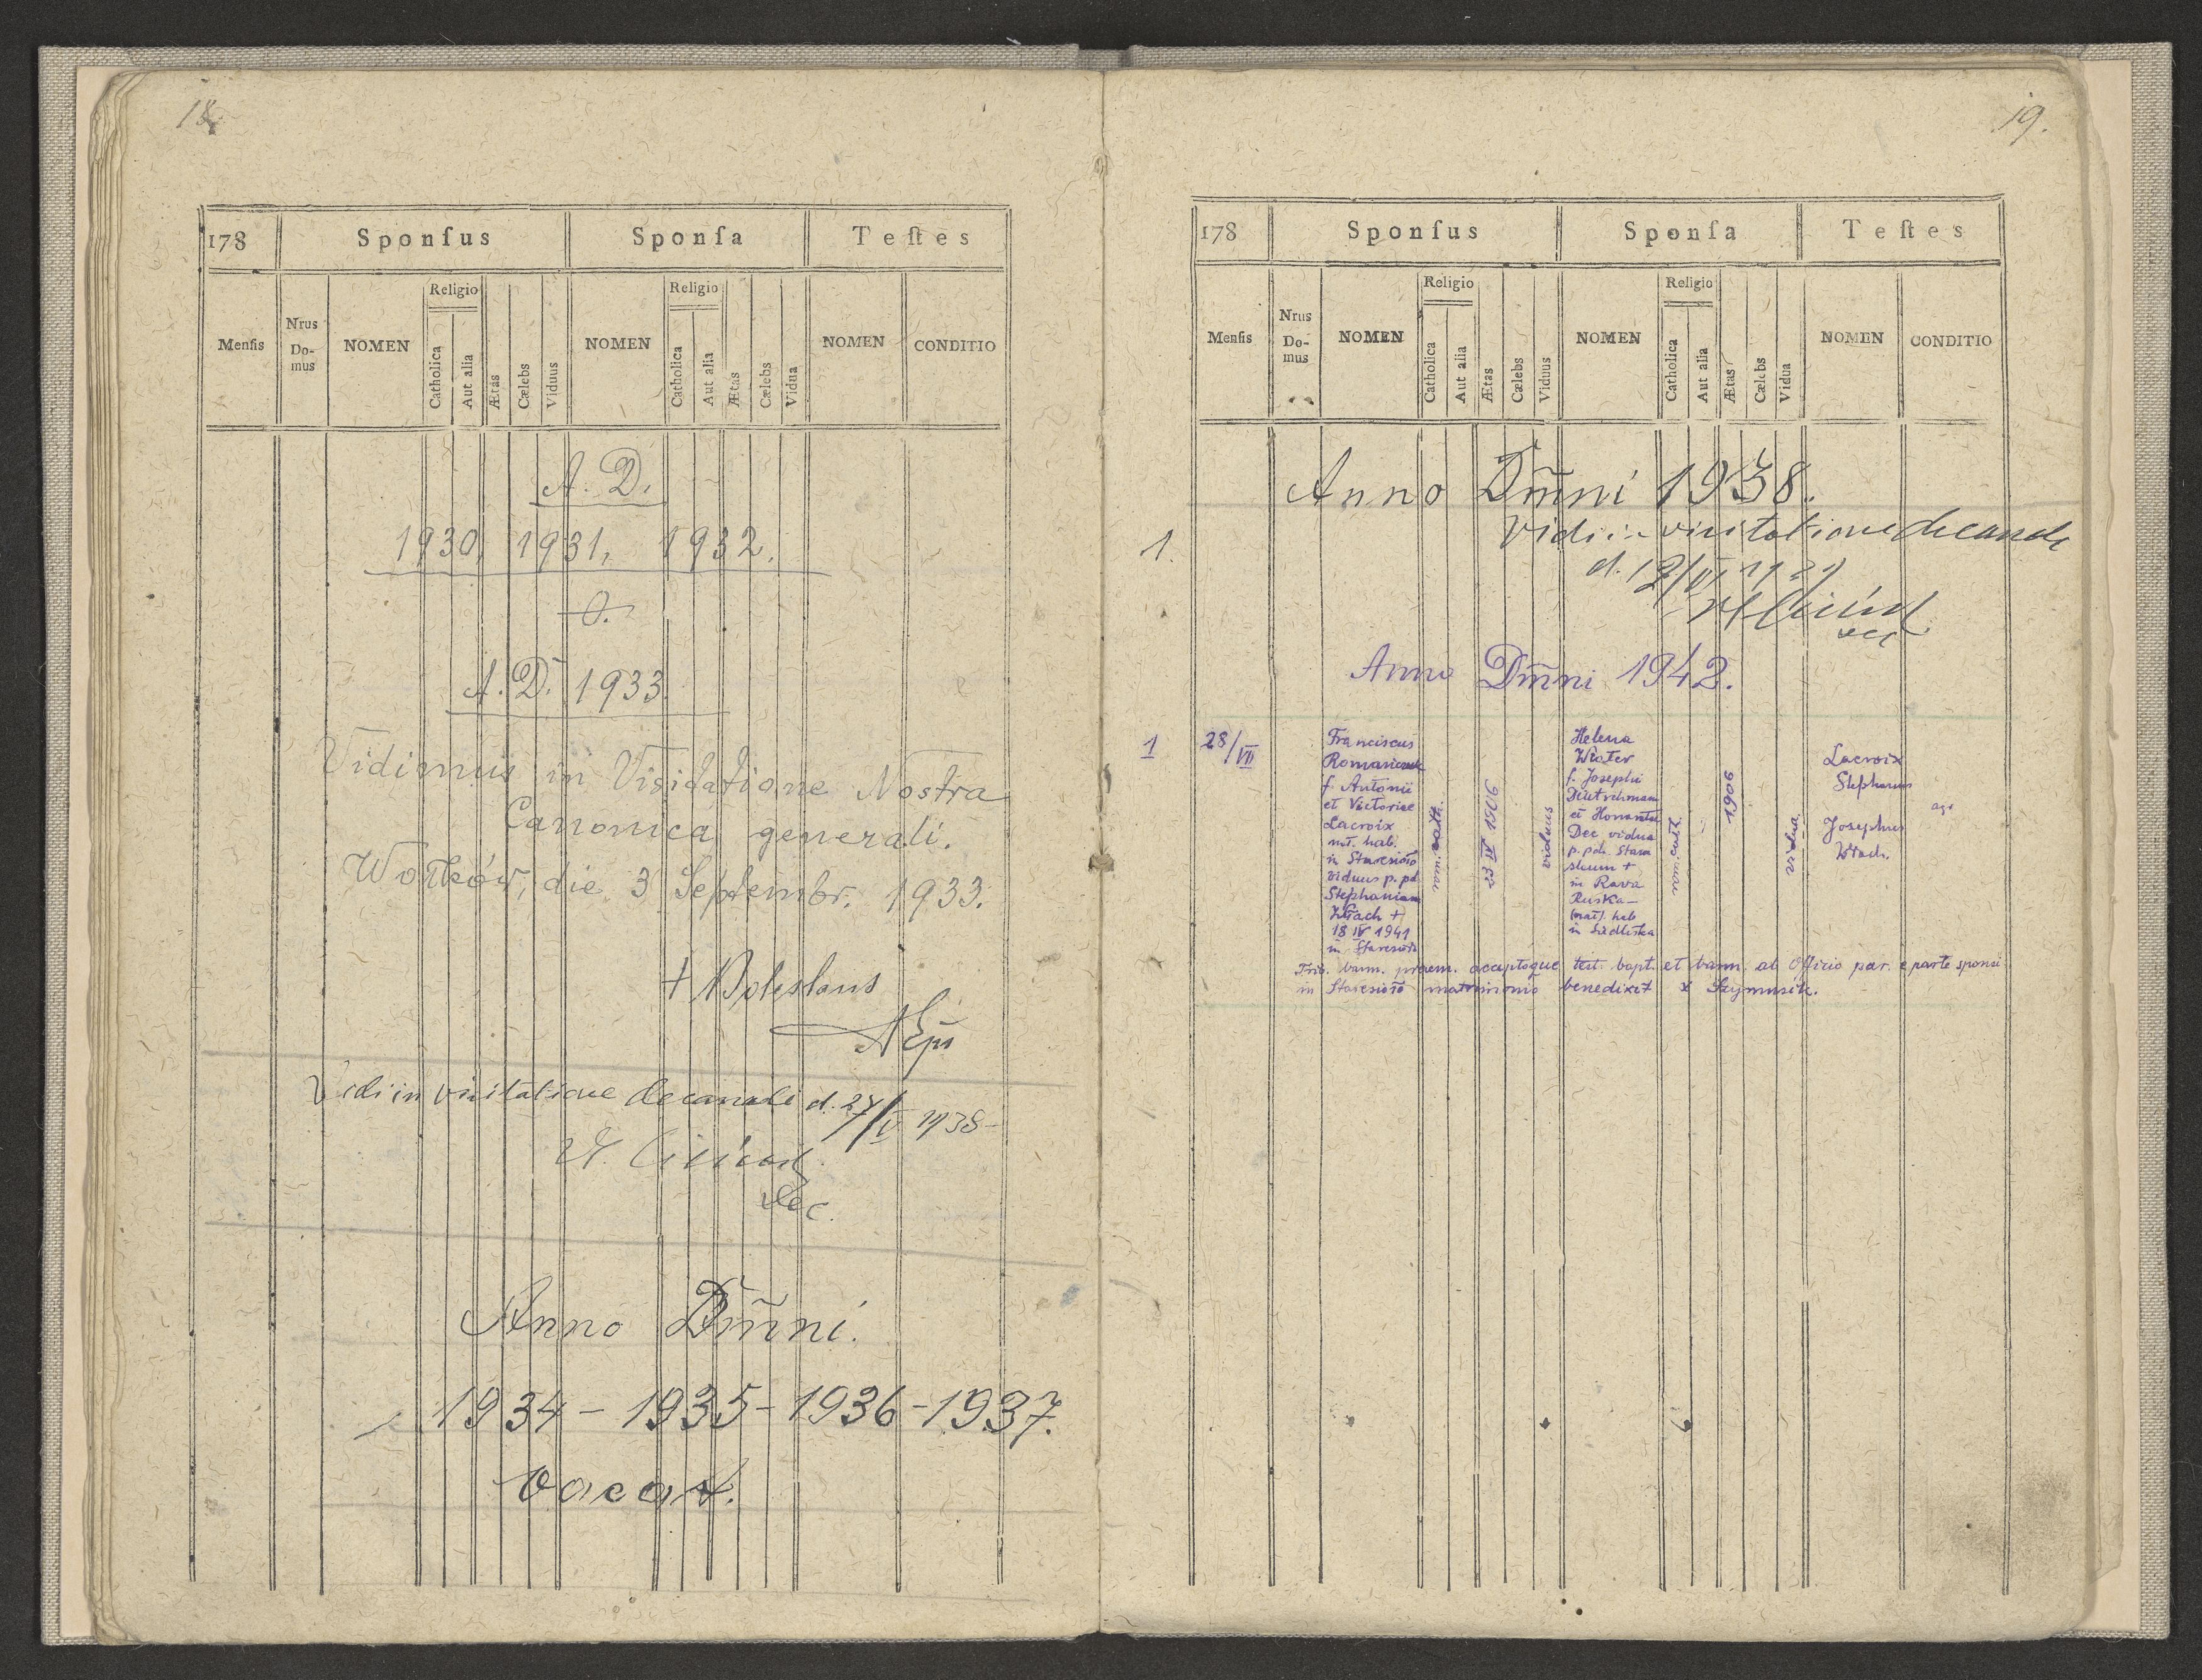 18
178 Sponſus Sponſa Teſtes
Menſis Nrus Do-mus NOMEN Religio Catholica Aut alia Ætas Cælebs Viduus NOMEN Religio Catholica Aut alia Ætas Cælebs Vidua NOMEN CONDITIO
A. D.
1930, 1931, 1932.
0.
A. D. 1933
Vidimus in Visitatione Nostra
Canonica generali.
die 3 Septembr. 1933.
+ Boleslaus
AEps
Vidi in visitatione decanali d. 27/IV 1938
Dec.
Anno Dm̃ni.
1934 - 1935 - 1936 - 1937.
vacat.
19.
178 Sponſus Sponſa Teſtes
Menſis Nrus Do-mus NOMEN Religio Catholica Aut alia Ætas Cælebs Viduus NOMEN Religio Catholica Aut alia Ætas Cælebs Vidua NOMEN CONDITIO
Anno Dm̃ni 1938.
1.
Vidi in visitatione decanali
Anno Dm̃ni 1942.
1
28/VII
Franciscus
Romaniuk
f. Antonii
et Victoriae
Lacroix
nat. hab.
in Staresioło
viduus p. pd.
Stephaniam
+
18 IV 1941
in Staresioło
rom. cath.
23 XI 1906
viduus
Helena
f. Josephi
et
Dec vidua
p. pd.
+
in Rawa
Ruska
(nat). hab
in Siedliska
rom. cath.
1906
vidua
Lacroix
Stephanus
Josephus
agr.
Trib. bann. praem. acceptoque test. bapt. et bann. ab Officio par. e parte sponsi
in Staresioło matrimonio benedixit x Szymusik.